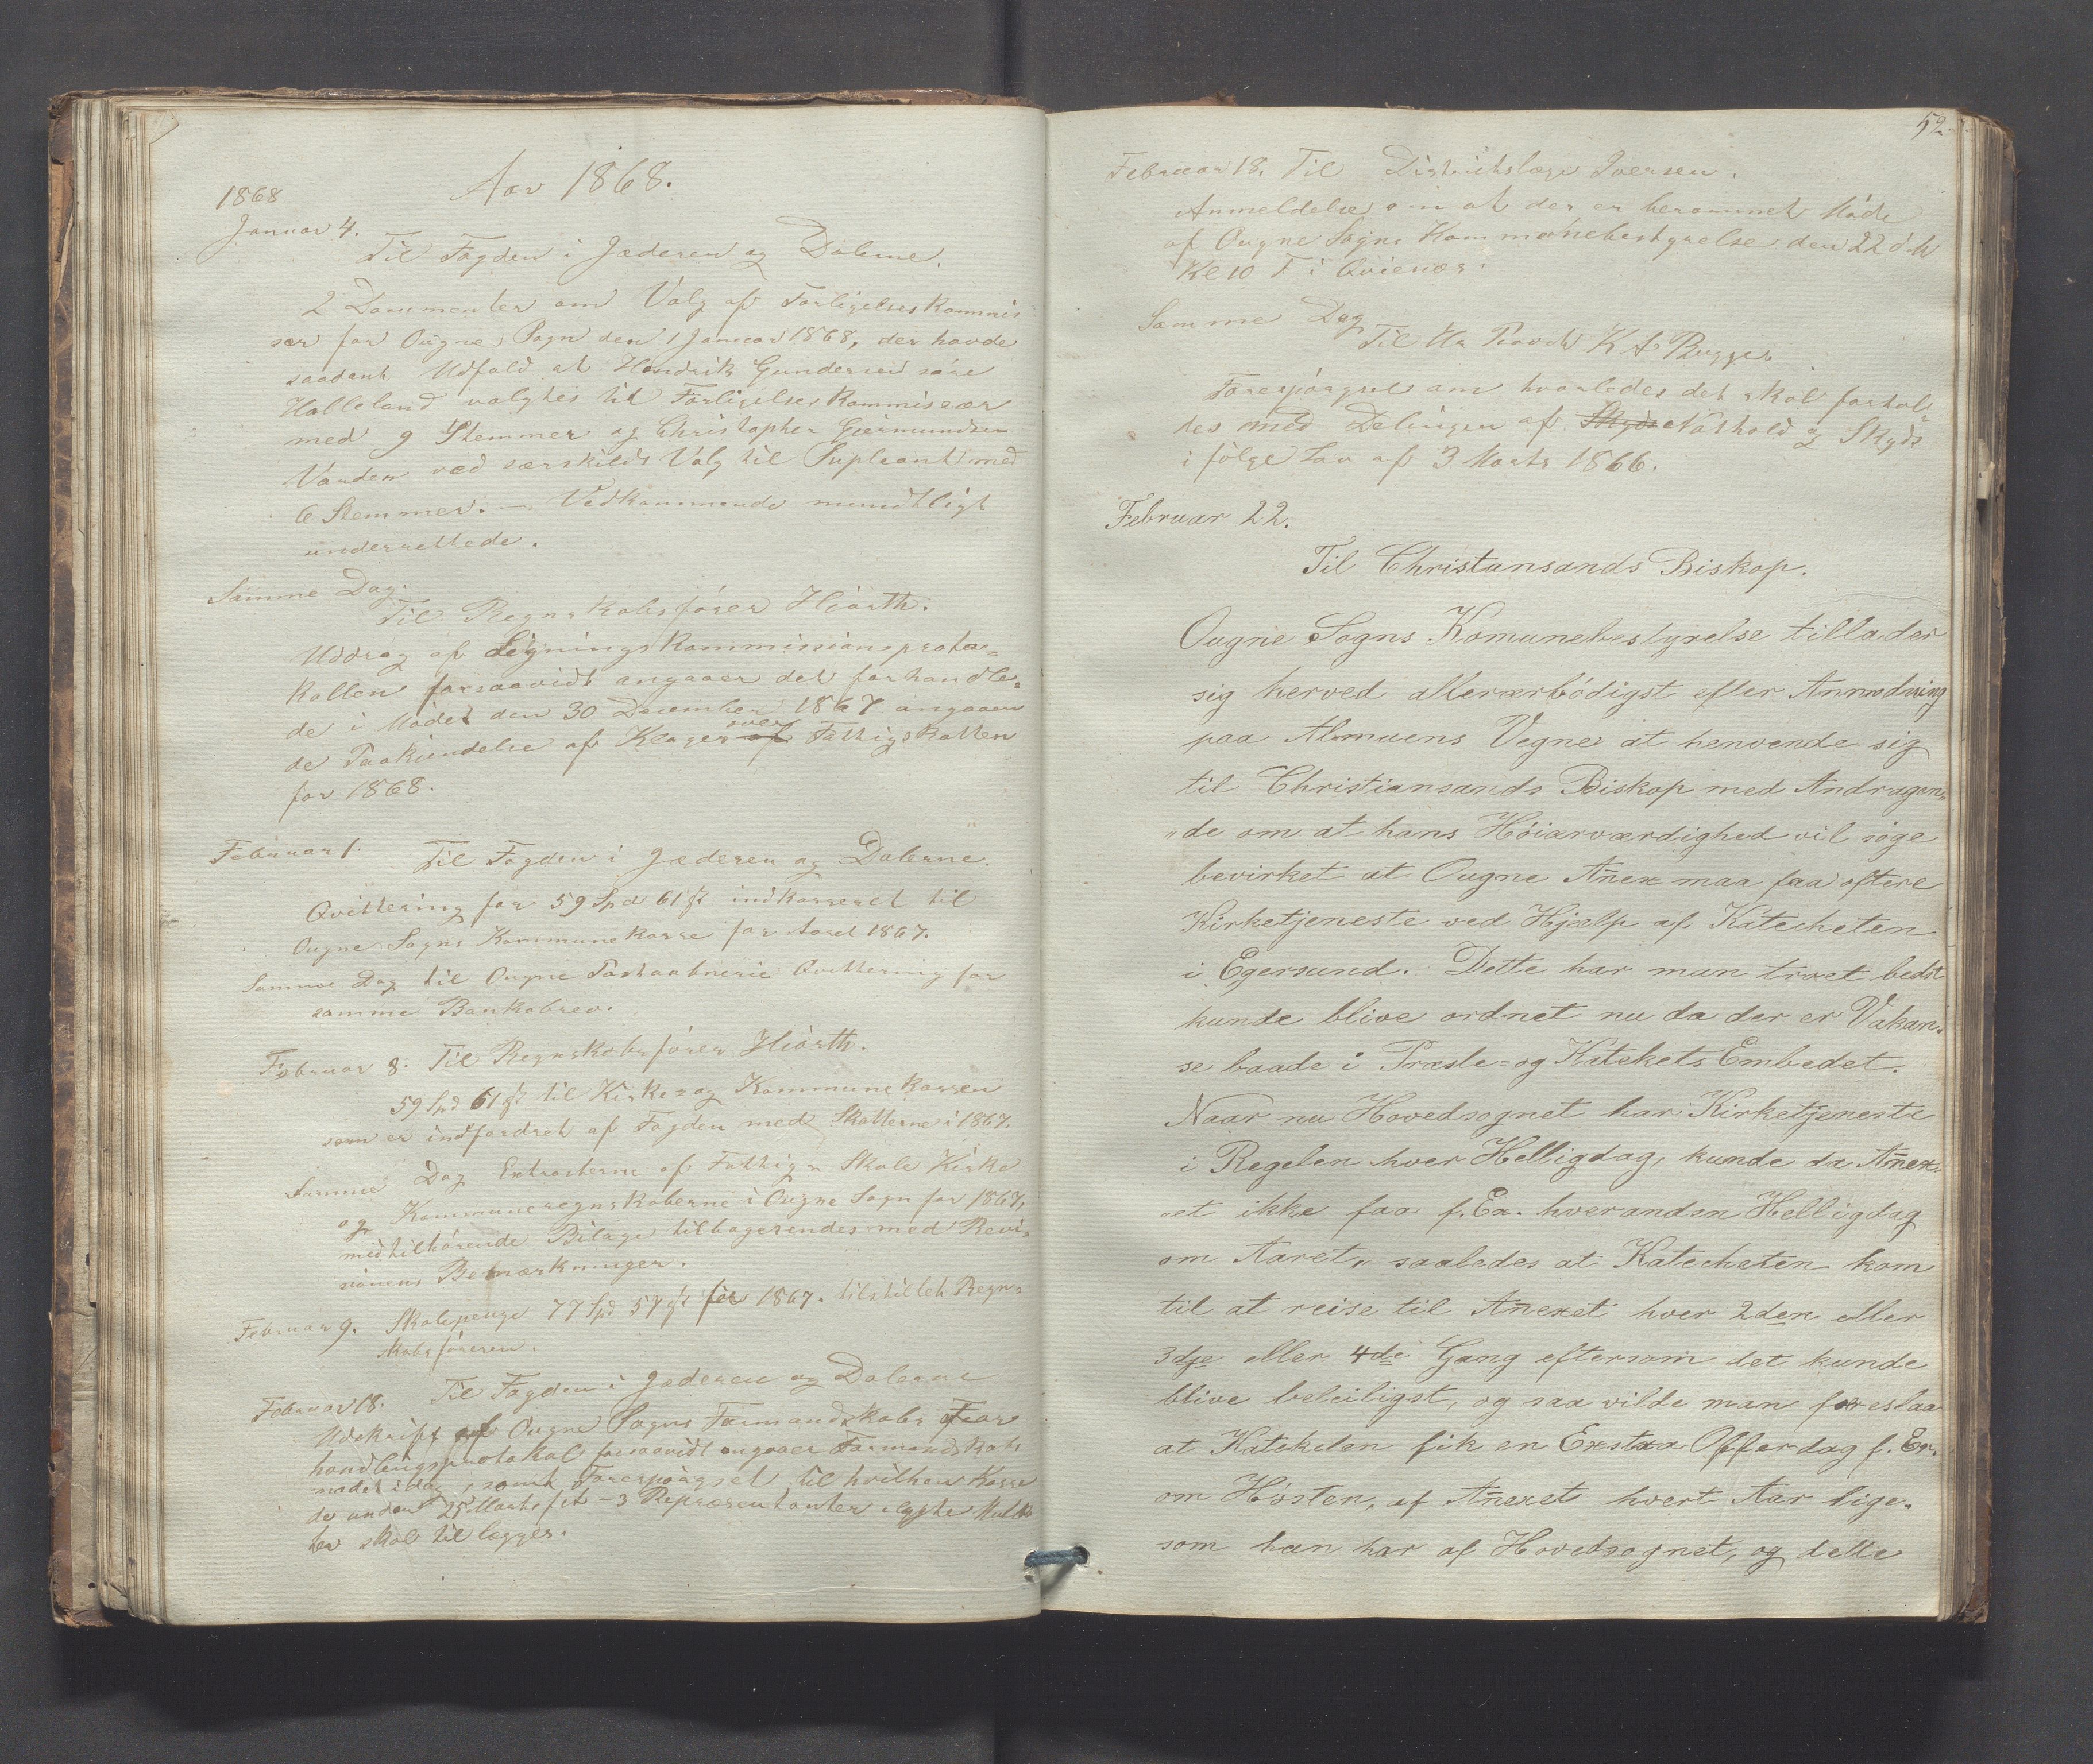 Aar 1868.
1868
Januar 4.
Til Fogden i Jæderen og Dalerne.
2 Documenter om Valg af Forligelseskommis
sær for Ougne Sogn den 1 Januar 1868, der havde
saadant Udfald at Hendrik Gundersen søre
Halleland valgtes til Forligelseskommissær
med 9 Stemmer og Christopher Giermundsen
Vanden ved særskildt Valg til Supleant med
6 Stemmer. — Vedkommende mundtligt
underrettede.
Samme Dag.
Til Regnskabsfører Hiorth.
Uddrag af Ligningskommissionsproto=
kollen forsaavidt angaaer det forhandle=
de i Mødet den 30 December 1867 angaaen
de Paakjendelse af Klager over af Fattigskatten
for 1868.
Februar 1.
Til Fogden i Jæderen og Dalerne.
Qvittering for 59 Spd 61 β indkasseret til
Ougne Sogns Kommunekasse for Aaret 1867.
Samme Dag til Ougne Postaabnerie Qvittering for
samme Bankobrev.
Februar 8. Til Regnskabsfører Hiorth.
59 Spd 61 β til Kirke= og Kommunekassen
som er indfordret af Fogden med Skatterne i 1867.
Samme Dag Extracterne af Fattig= Skole Kirke
og Kommuneregnskaberne i Ougne Sogn for 1867,
med tilhørende Bilage tilbagesendes med Revi=
sionens Bemærkninger.
Februar 9. Skolepenge 77 Spd 57 β for 1867. tilstillet Regn=
skabsføreren.
Februar 18. Til Fogden i Jæderen og Dalerne
Udskrift af Ougne Sogns Formandskabs For
handlingsprotokol forsaavidt angaaer Formandskabs
mødet idag, samt Forespørgsel til hvilken Kasse
de under 25 Marts f. A. 3 Repræsentanter ilagte Mulkt
ter skal tillægges.
52
Februar 18. Til Distriktslæge Iversen.
Anmeldelse om at der er berammet Møde
af Ougne Sogns Kommunebestyrelse den 22 d. M
Kl 10 F i Qvievær.
Samme Dag
Til Hr Provst K A Bugge
Forespørgsel om hvorledes det skal forhol=
des med Delingen af Skyds Nathold og Skyds
i følge Lov af 3 Marts 1866.
Februar 22.
Til Christansands Biskop.
Ougne Sogns Komunebestyrelse tillader
sig herved allerærbödigst efter Anmodning
paa Almuens Vegne at henvende sig
til Christiansands Biskop med Andragen=
"de om at hans Höiærværdighed vil söge
bevirket at Ougne Anex maa faa oftere
Kirketjeneste ved Hjælp af Katecheten
i Egersund. Dette har man troet bedst
kunde blive ordnet nu da der er Vakan=
se baade i Præste= og Katekets Embedet.
Naar nu Hovedsognet har Kirketjeneste
i Regelen hver Helligdag, kunde da Anex=
et ikke faa f. Ex. hverandan Helligdag
om Aaret, saaledes at Katecheten kom
til at reise til Anexet hver 2den eller
3dje eller 4de Gang eftersom det kunde
blive beleiligst, og saa vilde man foreslaa
at Kateketen fik en Exstra Offerdag f. Ex.
om Hösten, af Anexet hvert Aar lige=
som han har af Hovedsognet, og dette